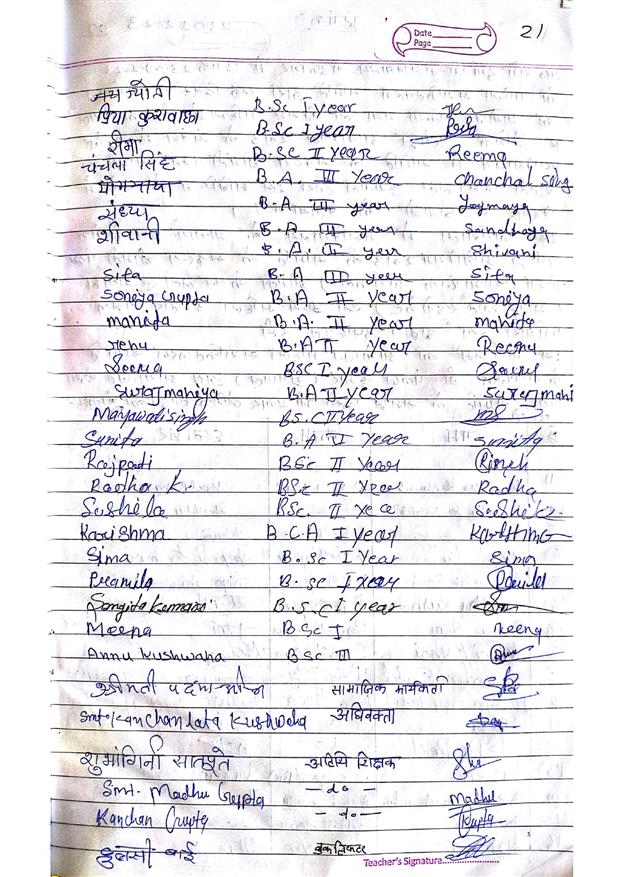 Date
Page
21
जय ज्योती B.Sc I year
प्रिया कुशवाहा B.Sc I year
रीमा B.Sc II year Reema
चंचला सिंह B.A. III Year Chanchal Sing
योगमाया B.A III year Yogmaya
संध्या B.A III year Sandhaya
शीवानी B.A. II year Shivani
Sita B.A III year Sita
Soniya Gupta B.A II year Soniya
manita B.A. II year manita
renu B.A II year Reenu
Seema BSC I year
Surajmaniya B.A II year Surajmani
Mayawati singh BS.C II year
Sunita B.A II Year Sunita
Rajpati BSc II Year
Radha K. BSc II Year Radha
Sushila BSc. II year Sushila
Karishma B.C.A I year Karishma
Sima B.Sc I Year Sima
Pramila B.Sc I year
Sangita Kumari B.S.C I year
Meena BSc I Meena
Annu Kushwaha BSc III
श्रीमती सामाजिक कार्यकर्ता
Smt. Kanchan Lata Kushwaha अधिवक्ता
शुभांगिनी सातपुते अतिथि शिक्षक
Smt. Madhu Gupta -do- Madhu
Kanchan Gupta -do- Gupta
तुलसी बाई बुक लिफ्टर
Teacher's Signature